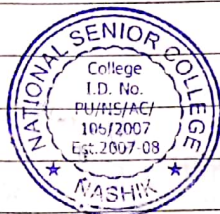 NATIONAL SENIOR COLLEGE
College
I.D. No.
PU/NS/AC/
106/2007
Est.2007-08
★ NASHIK ★